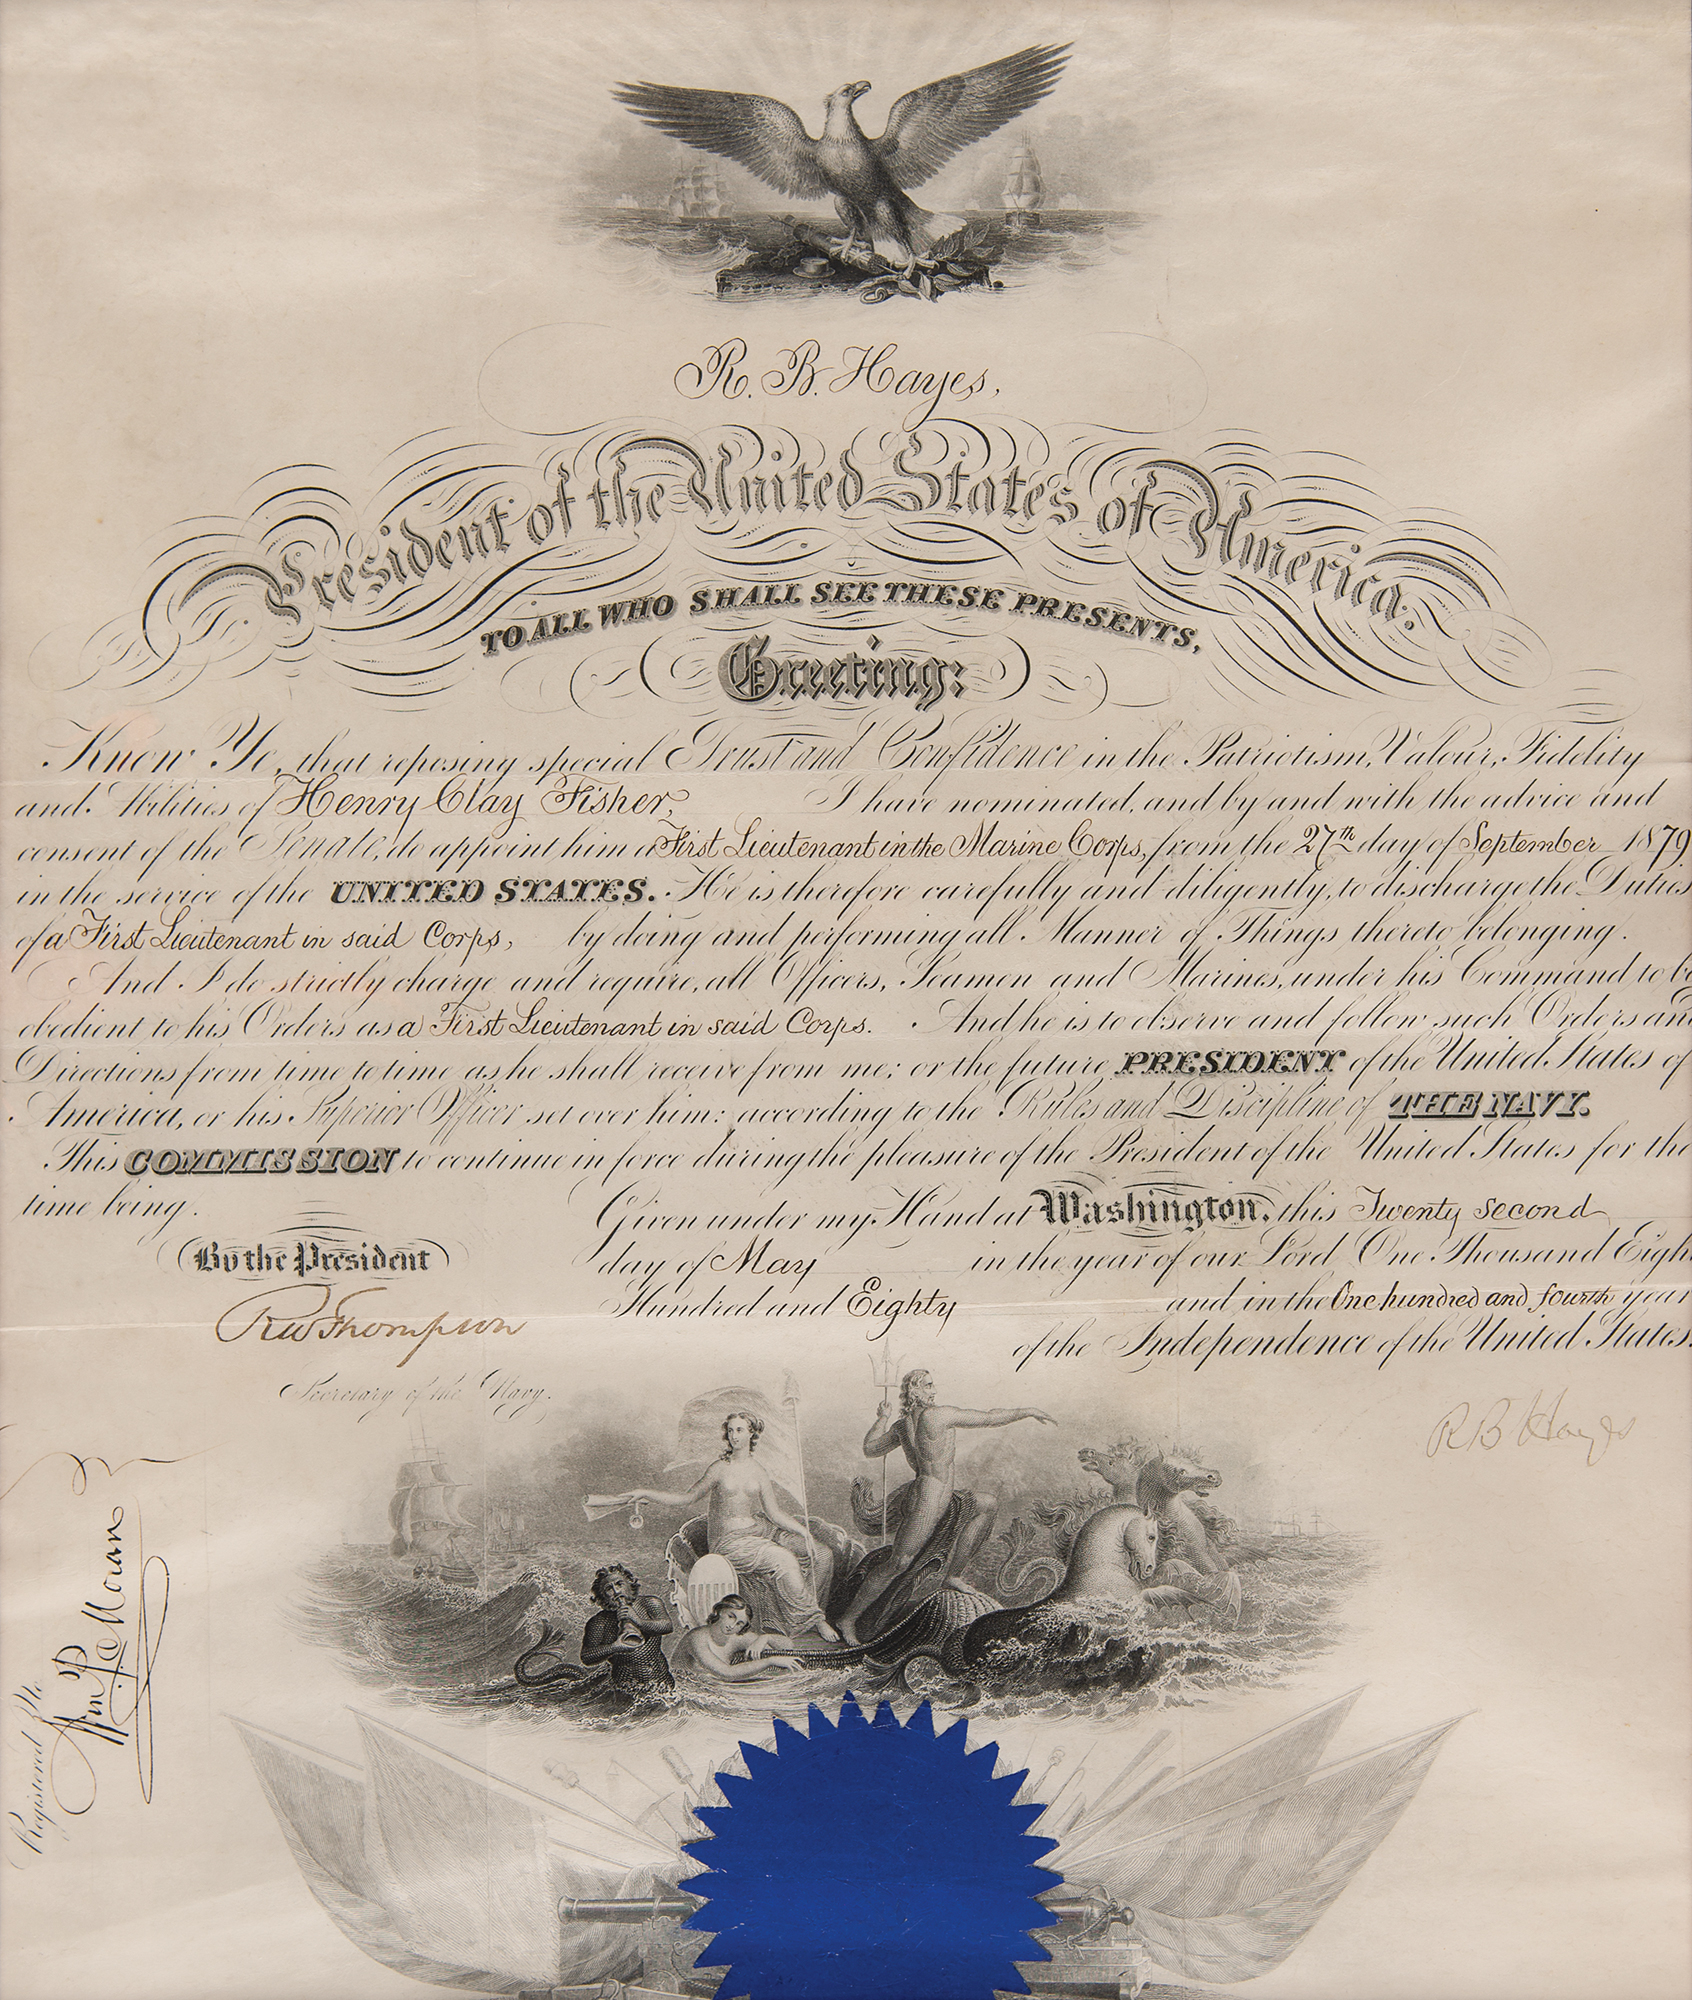 R. B. Hayes,
President of the United States of America.
TO ALL WHO SHALL SEE THESE PRESENTS,
Greeting:
Know Ye, that reposing special Trust and Confidence in the Patriotism, Valour, Fidelity
and Abilities of Henry Clay Fisher, I have nominated, and by and with the advice and
consent of the Senate, do appoint him a First Lieutenant in the Marine Corps, from the 27th day of September 1879
in the service of the UNITED STATES. He is therefore carefully and diligently, to discharge the Duties
of a First Lieutenant in said Corps, by doing and performing all Manner of Things thereto belonging.
And I do strictly charge and require, all Officers, Seamen and Marines, under his Command to be
obedient to his Orders as a First Lieutenant in said Corps. And he is to observe and follow such Orders and
Directions from time to time as he shall receive from me; or the future PRESIDENT of the United States of
America, or his Superior Officer set over him: according to the Rules and Discipline of THE NAVY.
This COMMISSION to continue in force during the pleasure of the President of the United States for the
time being.
Given under my Hand at Washington, this Twenty second
By the President
day of May in the year of our Lord One Thousand Eigh
Hundred and Eighty and in the One hundred and fourth year
RW Thompson
of the Independence of the United States.
Secretary of the Navy.
R B Hayes
Registered No.
Wm P. Moran